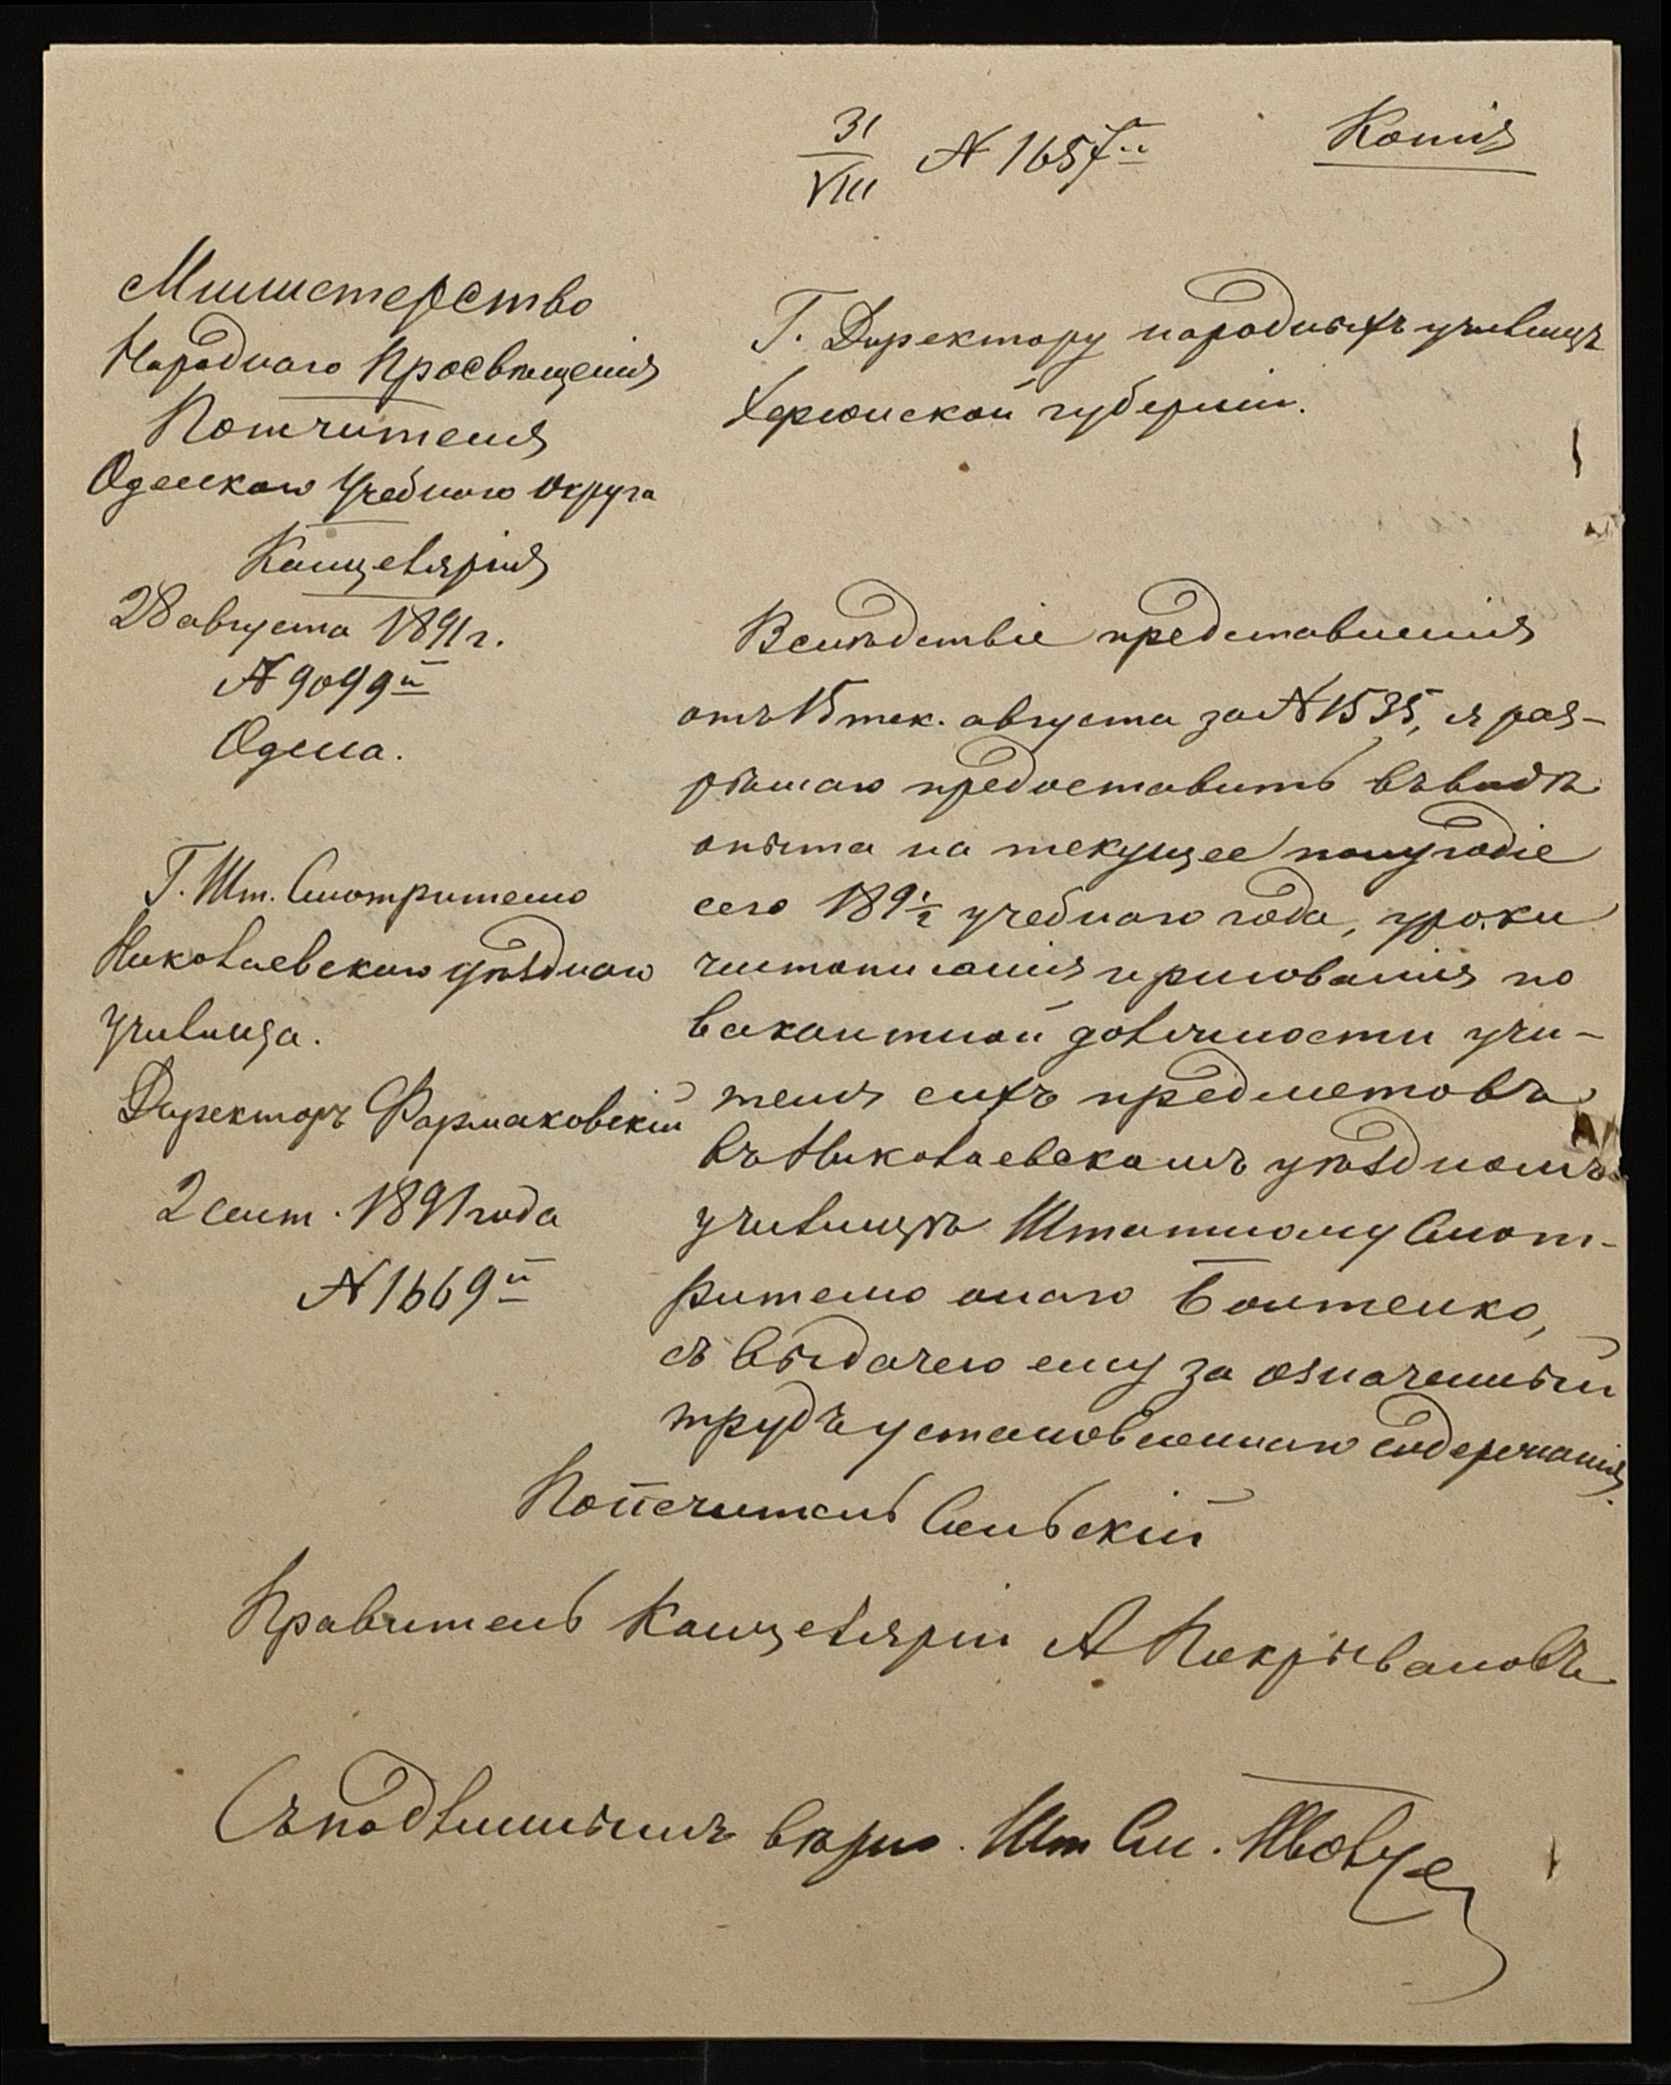 31/VIII № 1657
Копія
Министерство
Народнаго Просвѣщенія
Попечителя
Одесскаго Учебнаго Округа
Канцелярія
28 августа 1891 г.
№ 9099
Одесса.
Г. Шт. Смотрителю
Николаевскаго уѣзднаго
училища.
Директоръ Фармаковскій
2 сент. 1891 года
№ 1669
Г. Директору народныхъ училищъ
Херсонской губерніи.
Вслѣдствіе представленія
отъ 15 тек. августа за № 1535, я раз-
рѣшаю предоставить въ видѣ
опыта на текущее полугодіе
сего 189½ учебнаго года, уроки
чистописанія и рисованія по
вакантной должности учи-
теля сихъ предметовъ
въ Николаевскомъ уѣздномъ
училищѣ Штатному Смот-
рителю онаго
съ выдачею ему за означенный
трудъ установленнаго содержанія.
Попечитель Сольскій
Правитель Канцеляріи А Покрывановъ
Съ подлиннымъ вѣрно. Шт См.